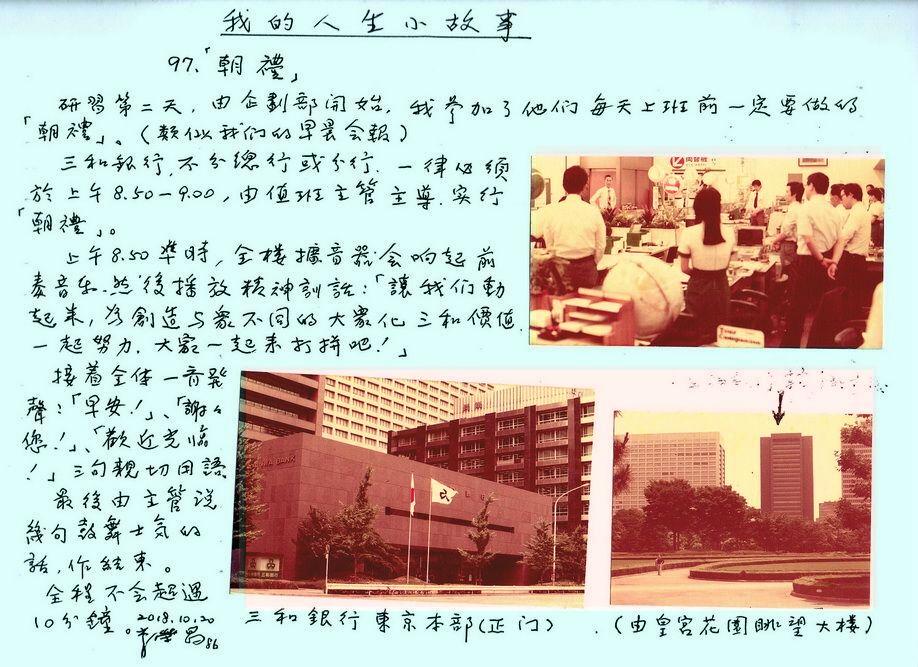 我的人生小故事
97、「朝禮」
研習第二天，由企劃部開始，我參加了他们每天上班前一定要做的
「朝禮」。（類似我们的早晨会報）
三和銀行，不分總行或分行，一律必須
於上午8.50－9.00，由值班主管主導，实行
「朝禮」。
上午8.50準時，全樓擴音器会响起前
奏音乐，然後播放精神訓話：「讓我们動
起来，為創造与眾不同的大眾化三和價值，
一起努力，大家一起来打拼吧！」
接着全体一音發
聲：「早安！」、「謝々
您！」、「歡迎光臨
！」三句親切用語
最後由主管说
幾句鼓舞士気的
話，作結束。
全程不会超過
10分鐘。
2018.10.20
86
WA BANK
三和銀行東京本部（正门）
（由皇宮花園眺望大樓）